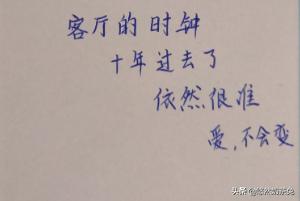 客厅的时钟
十年过去了
依然很准
爱,不会变
头条@悠然奶茶兔